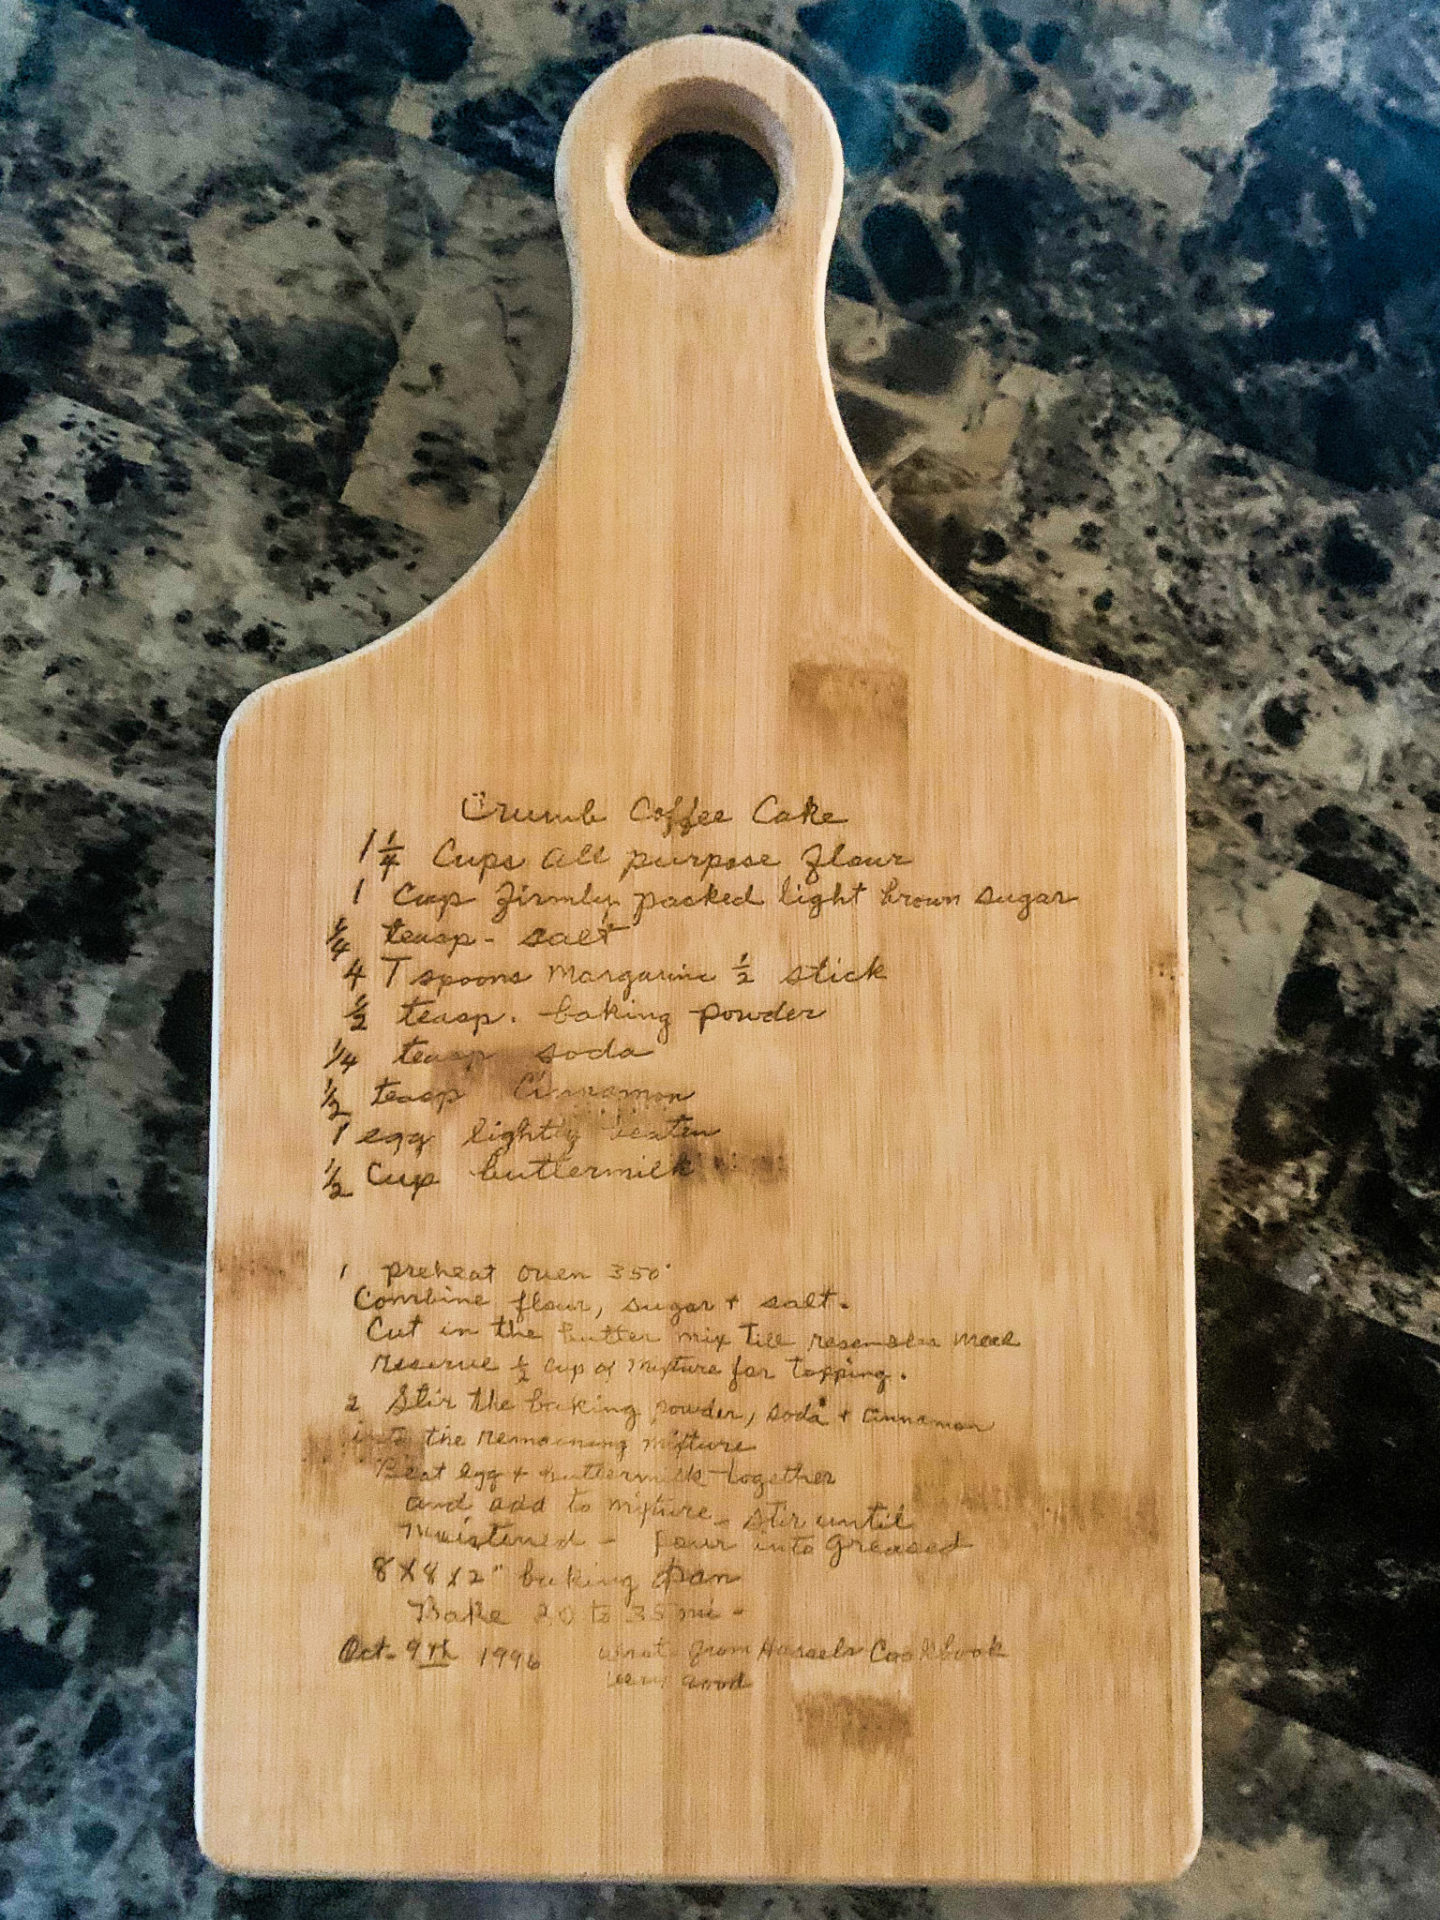 Crumb Coffee Cake
1 1/4 Cups all purpose flour
1 Cup firmly packed light brown sugar
1/4 teasp - salt
4 Tspoons margarine 1/2 stick
1/2 teasp. baking powder
1/4 teasp soda
1/2 teasp Cinnamon
1 egg lightly beaten
1/2 Cup buttermilk
1 preheat oven 350°
Combine flour, sugar + salt.
Cut in the butter mix till resembles meal
reserve 1/2 cup of mixture for topping.
2 Stir the baking powder, soda + cinnamon
into the remaining mixture
Beat egg + buttermilk together
and add to mixture - stir until
moistened - pour into greased
8 X 8 X 2" baking pan
Bake 30 to 35 mi -
Oct. 9th 1996 from Cookbook
very good